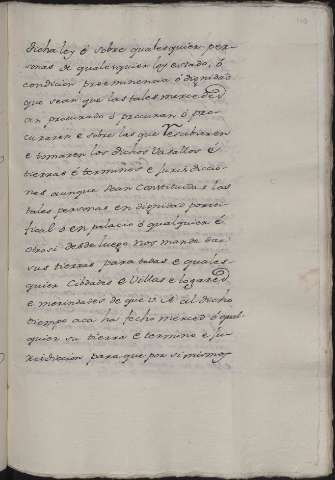 dicha ley ó sobre qualesquier per-
sonas de qualesquier ley estado, ó
condicion preeminencia ó dignidad
que sean que las tales mercedes
an procurado ó procuran ó pro-
curaren e sobre las que rescibieren
e tomaren los dichos vasallos é
tierras e terminos e jurisdiccio-
nes aunque sean constituidas las
tales personas en dignidad ponti-
fical ó en palacio ó qualquier é
otrosi desde luego nos manda dar
sus tierras para todas e quales-
quier Cibdades e Villas e logares
e merindades de que V. A. al dicho
tiempo aca ha fecho merced ó qual
quier su tierra e termino e ju-
risdiccion para que por si mismos